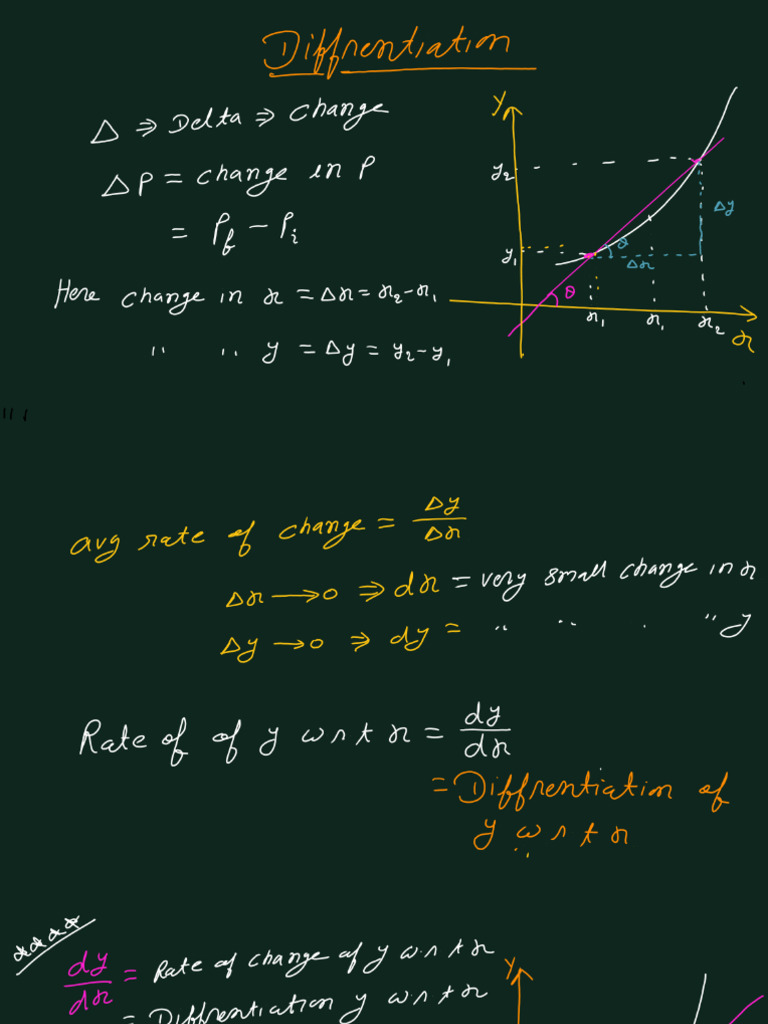 Diffrentiation
Δ ⇒ Delta ⇒ change
ΔP = change in P
= P_f - P_i
Here change in x = Δx = x₂-x₁
" " y = Δy = y₂-y₁
y
y₂
y₁
Δy
θ
Δx
θ
x₁
x₁
x₂
x
avg rate of change = Δy/Δx
Δx → 0 ⇒ dx = very small change in x
Δy → 0 ⇒ dy = " " " y
Rate of of y w r t x = dy/dx
= Diffrentiation of
y w r t x
dy/dx = Rate of change of y w.r t x
= Diffrentiation y w r t x
y